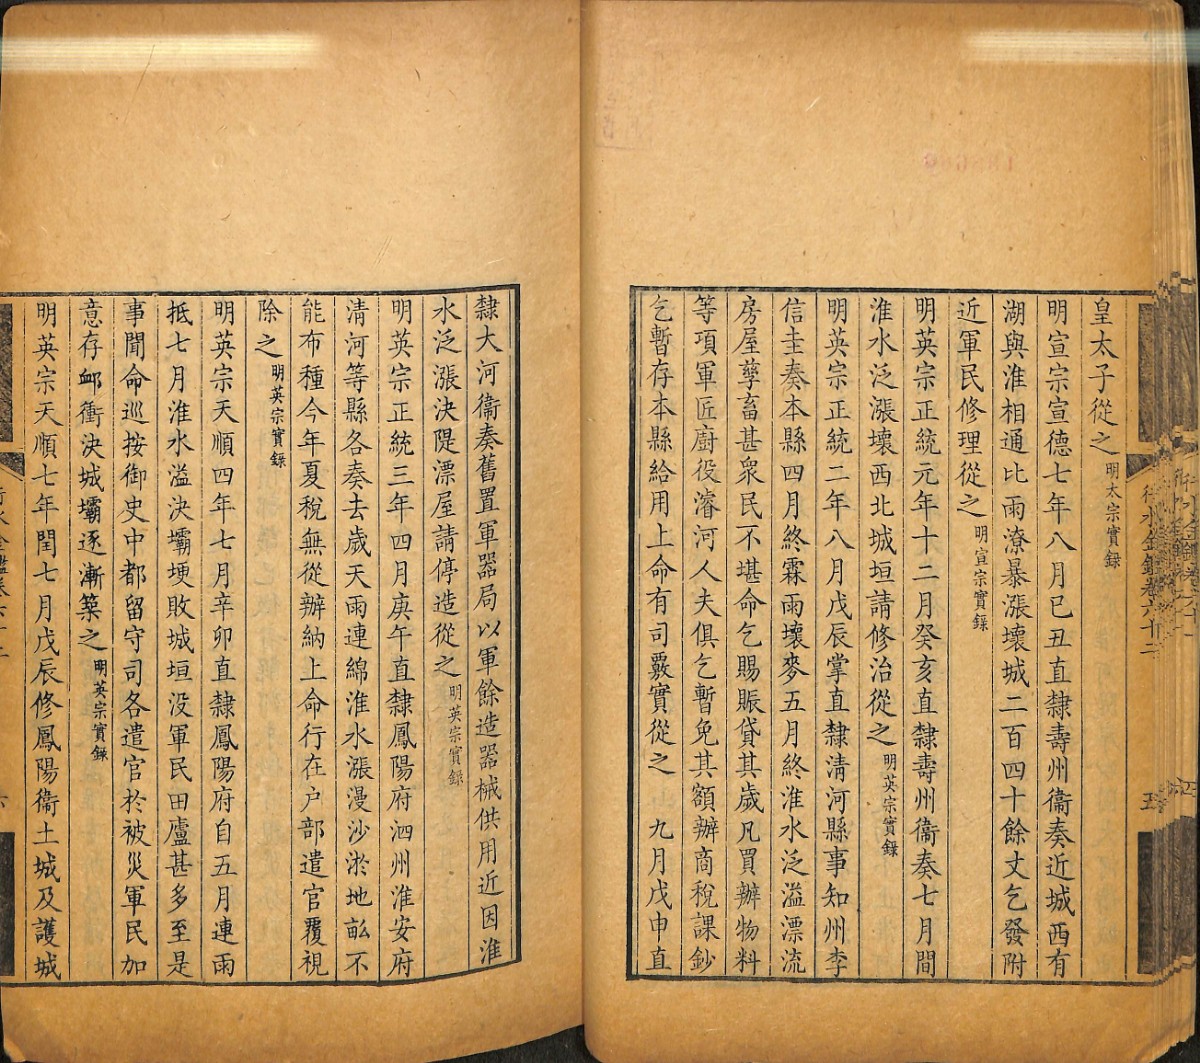 皇太子從之明太宗實錄
明宣宗宣德七年八月已丑直隸壽州衞奏近城西有
湖與淮相通比雨潦暴漲壞城二百四十餘丈乞發附
近軍民修理從之明宣宗實錄
明英宗正統元年十二月癸亥直隸壽州衞奏七月間
淮水泛漲壞西北城垣請修治從之明英宗實錄
明英宗正統二年八月戊辰掌直隸淸河縣事知州李
信圭奏本縣四月終霖雨壞麥五月終淮水泛溢漂流
房屋孳畜甚衆民不堪命乞賜賑貸其歲凡買辦物料
等項軍匠廚役濬河人夫俱乞暫免其額辦商稅課鈔
乞暫存本縣給用上命有司覈實從之　九月戊申直
隸大河衞奏舊置軍器局以軍餘造器械供用近因淮
水泛漲決隄漂屋請停造從之明英宗實錄
明英宗正統三年四月庚午直隸鳳陽府泗州淮安府
淸河等縣各奏去歲天雨連綿淮水漲漫沙淤地畝不
能布種今年夏稅無從辦納上命行在户部遣官覆視
除之明英宗實錄
明英宗天順四年七月辛卯直隸鳳陽府自五月連雨
抵七月淮水溢決壩埂敗城垣没軍民田廬甚多至是
事聞命巡按御史中都留守司各遣官於被災軍民加
意存邺衝決城壩逐漸築之明英宗實錄
明英宗天順七年閏七月戊辰修鳳陽衞土城及護城